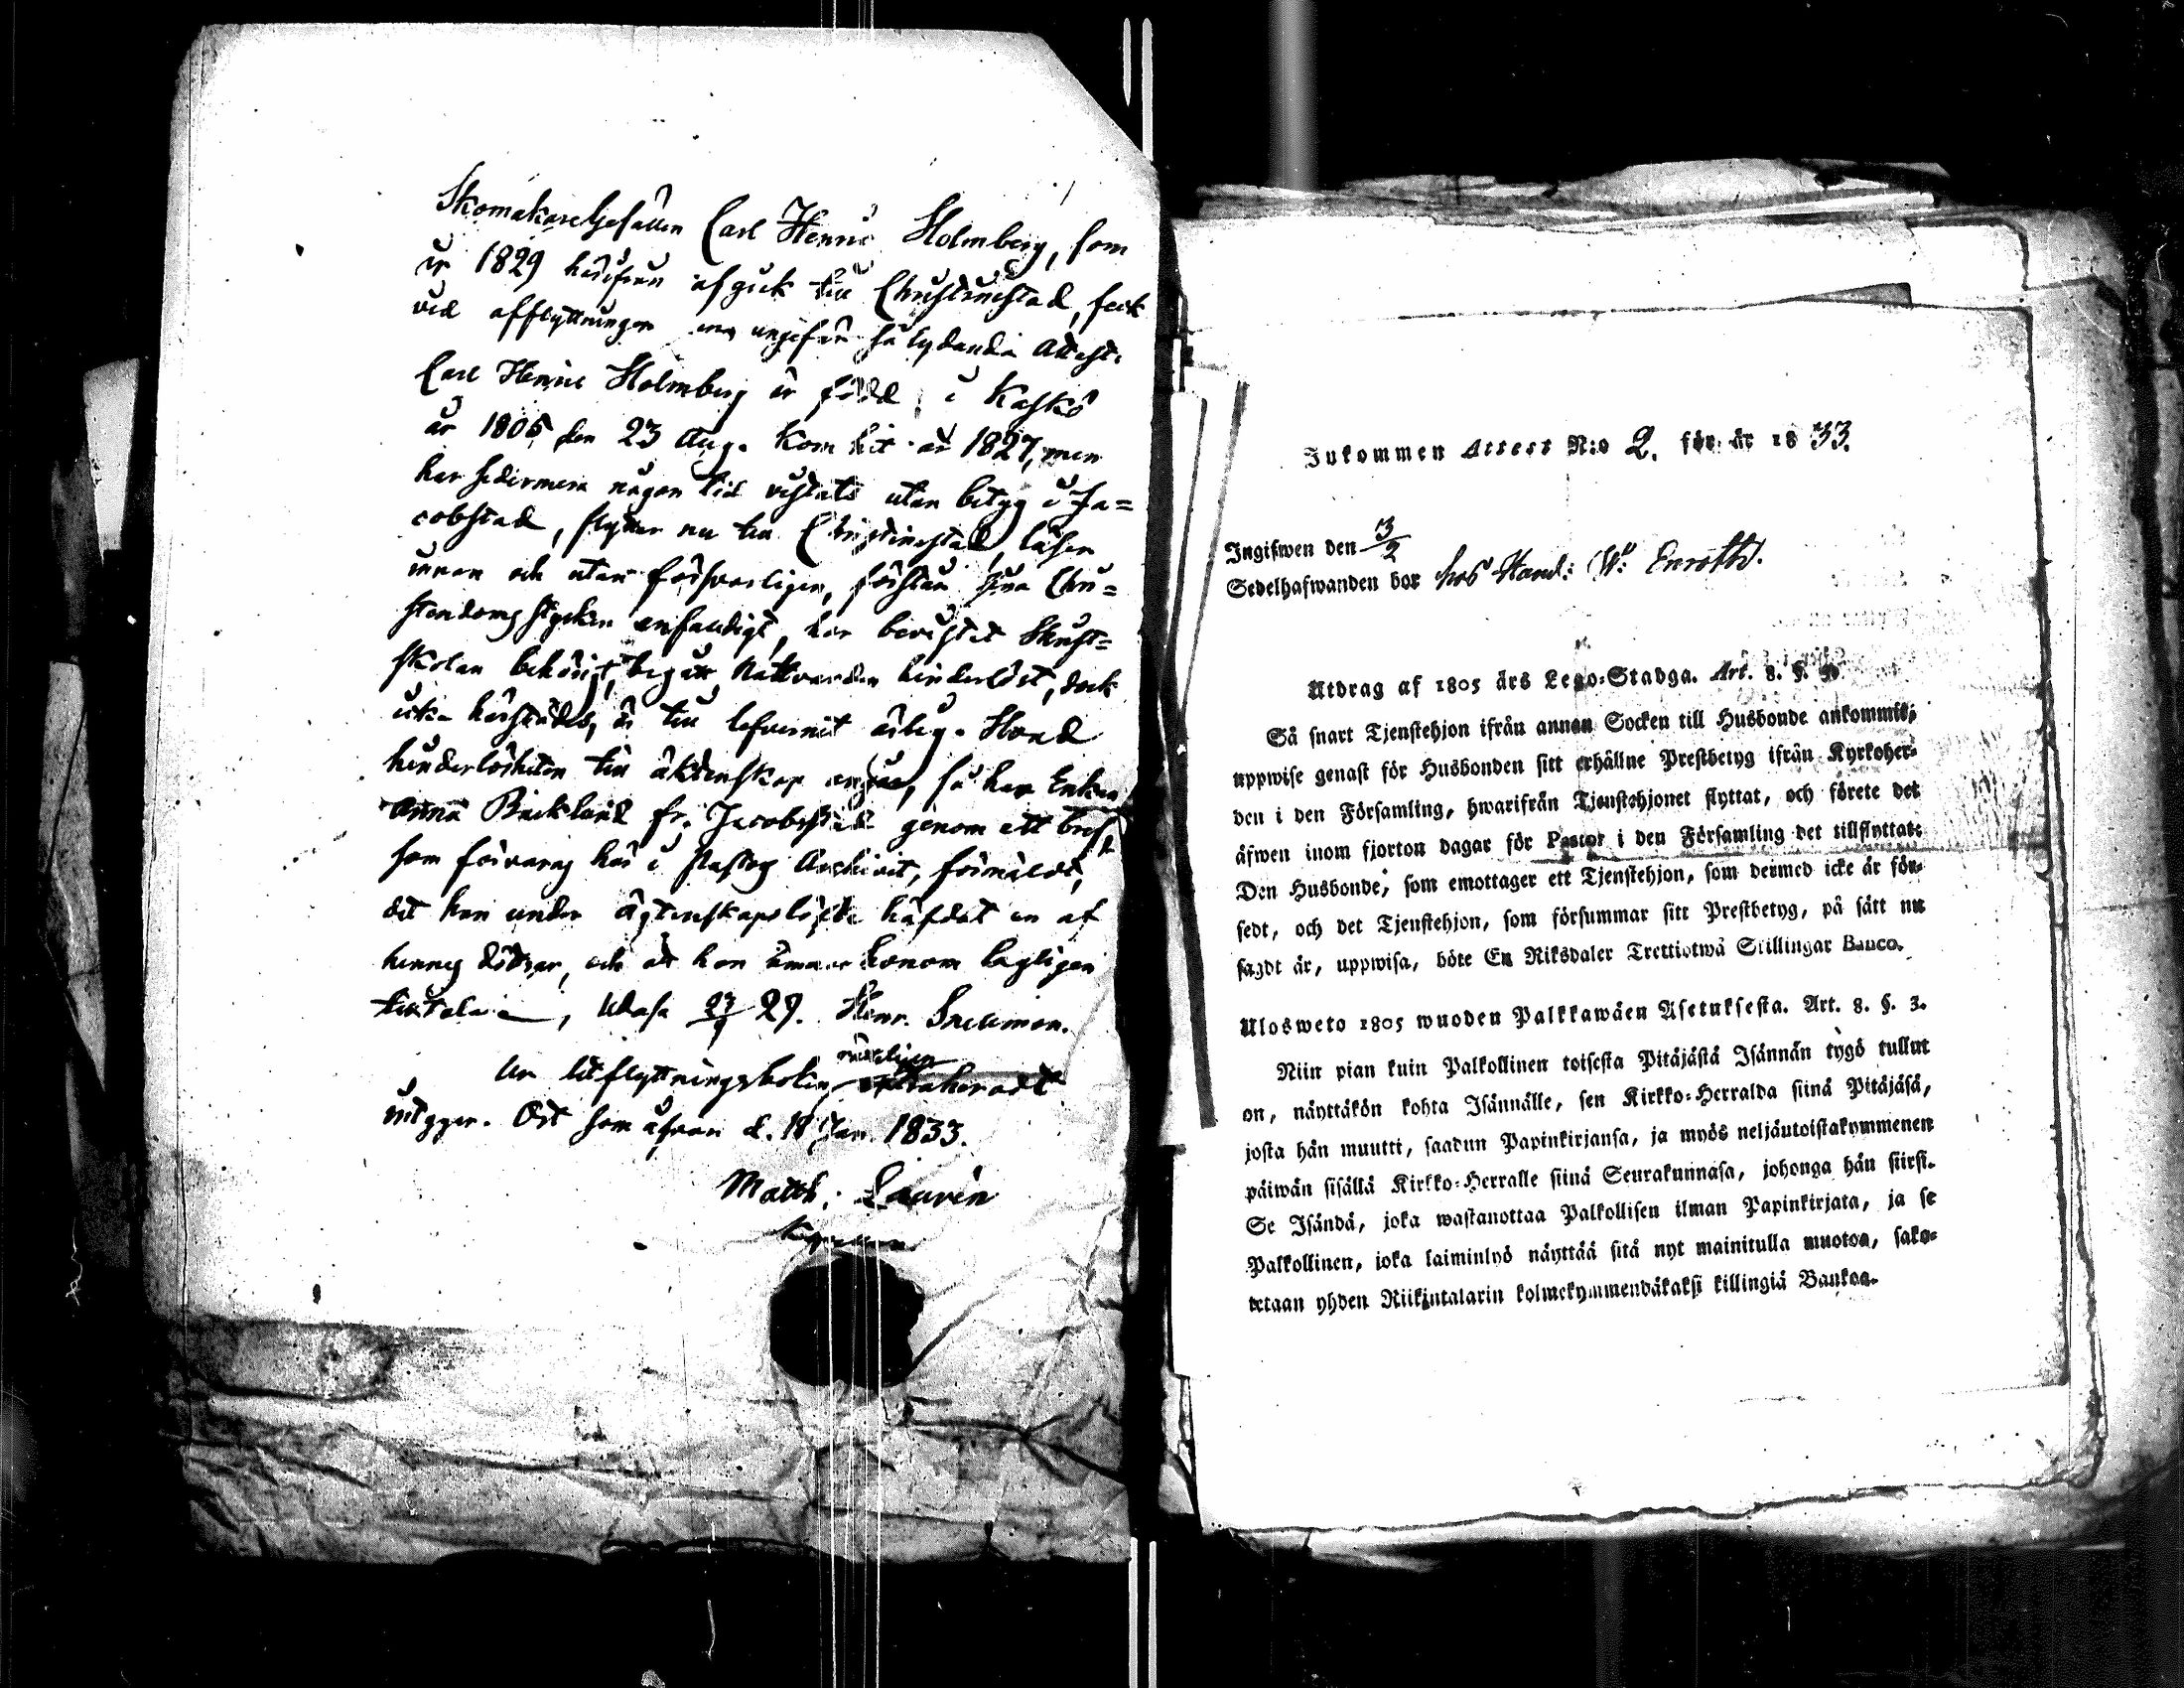 Skomakare Gesällen Carl Henric Holmberg, som
år 1829 härifrån afgick till Christinestad, feck
vid afflyttningen en ungefär så lydande Attest:
Carl Henric Holmberg är född i Kaskö
år 1805 den 23 Aug. Kom hit år 1827, men
har sedermera någon tid vistats utan betyg i Ja=
cobstad, flyttar nu till Christinestad, läser
innan och utan försvarligen, förstår sina Chri=
stendoms stycken enfaldigt, har bevistat Skrift=
skolan behörigt, begått Nattvarden hinderlöst, dock
icke härstädes, är till lefvernet ärlig. Hvad
hinderlösheten till äktenskap angår, så har Enkan
Anna Backlund fr. Jacobstad genom ett bref,
som förvaras här i Pastors Archivet, förmäldt,
det han under ägtenskapslöfte häfdat en af
hennes döttrar, och at hon ämnar honom lagligen
tilltala, Wasa 23/9 29. Henr. Snellman.
Ur utflyttningsboken
rätteligen
intygar. Ort som ofvan d. 18 Jan. 1833.
Matth: Laurén
Inkommen Attest N:o 2. för år 1833.
Ingifwen den 3/2
Sedelhafwanden bor hos Hand: W: Enroth.
Utdrag af 1805 års Lego-Stadga. Art. 8. §.
Så snart Tjenstehjon ifrån annan Socken till Husbonde ankommit,
uppwise genast för Husbonden sitt erhållne Prestbetyg ifrån Kyrkoher-
den i den Församling, hwarifrån Tjenstehjonet flyttat, och förete det
äfwen inom fjorton dagar för Pastor i den Församling det tillflyttat:
Den Husbonde, som emottager ett Tjenstehjon, som dermed icke är för-
sedt, och det Tjenstehjon, som försummar sitt Prestbetyg, på sätt nu
sagdt är, uppwisa, böte En Riksdaler Trettiotwå Skillingar Banco.
Ulosweto 1805 wuoden Palkkawäen Asetuksesta. Art. 8. §. 3.
Niin pian kuin Palkollinen toisesta Pitäjästä Isännän tygö tullut
on, näyttäkön kohta Isännälle, sen Kirkko-Herralda siinä Pitäjäsä,
josta hän muutti, saadun Papinkirjansa, ja myös neljäntoistakymmenen
päiwän sisällä Kirkko-Herralle siinä Seurakunnasa, johonga hän siirsi.
Se Isändä, joka wastanottaa Palkollisen ilman Papinkirjata, ja se
Palkollinen, joka laiminlyö näyttää sitä nyt mainitulla muotoa, sako-
tetaan yhden Riikintalarin kolmekymmendäkaksi killingiä Bankoa.